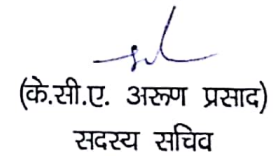 (के.सी.ए. अरूण प्रसाद)
सदस्य सचिव